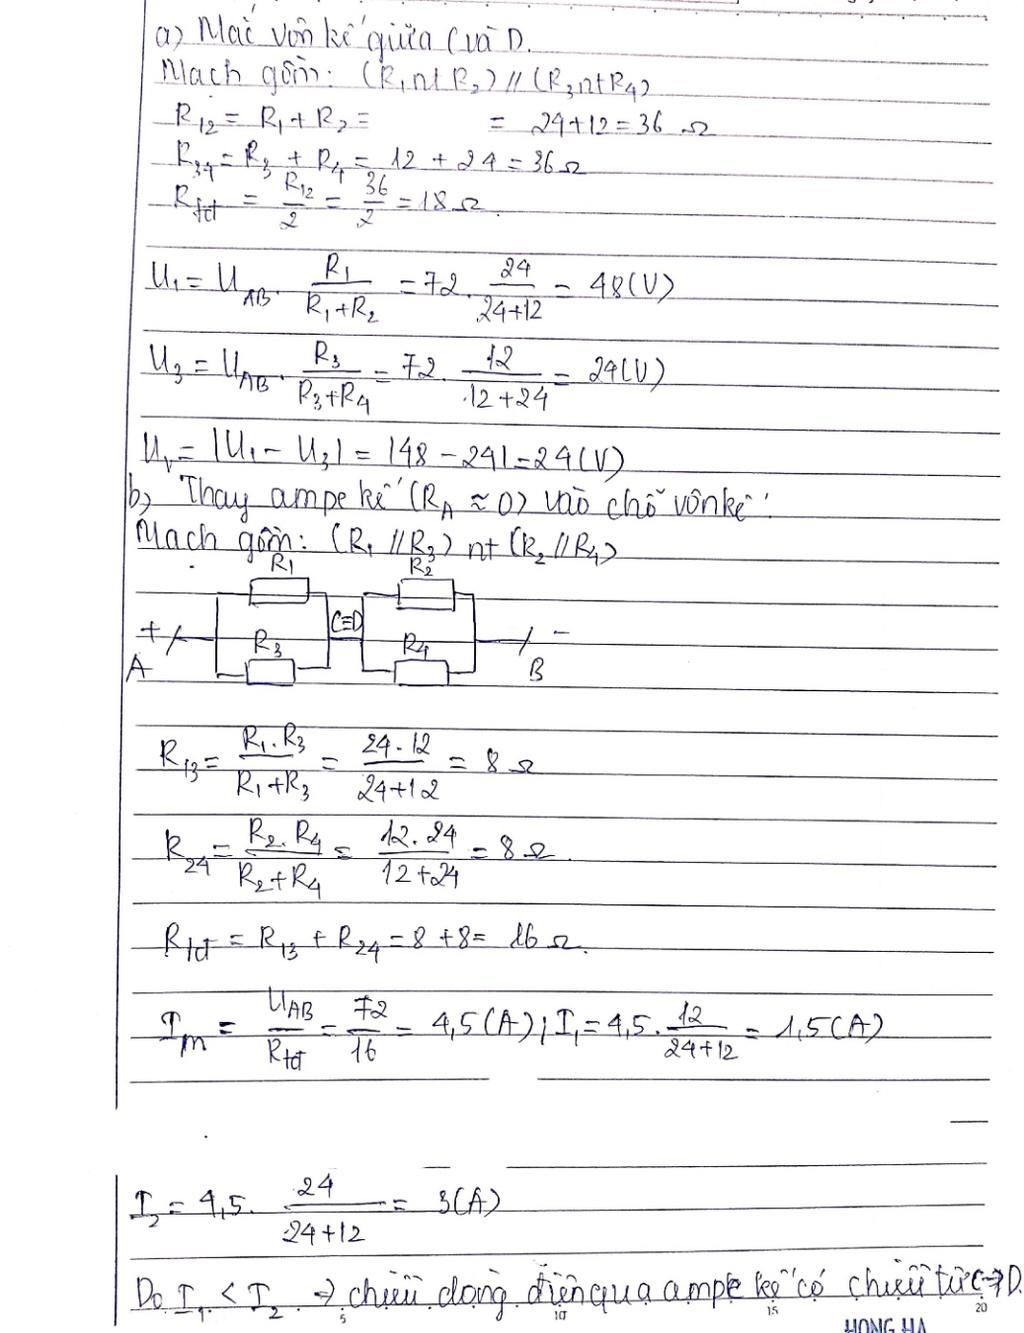 a) Mắc vôn kế giữa C và D.
Mạch gồm: (R₁ nt R₂) // (R₃ nt R₄)
R₁₂ = R₁ + R₂ = = 24+12 = 36 Ω
R₃₄ = R₃ + R₄ = 12 + 24 = 36 Ω
Rtđ = R₁₂/2 = 36/2 = 18 Ω.
U₁ = U_AB . R₁/(R₁+R₂) = 72 . 24/(24+12) = 48 (V)
U₃ = U_AB . R₃/(R₃+R₄) = 72 . 12/(12+24) = 24 (V)
Uv = |U₁ - U₃| = |48 - 24| = 24 (V)
b) Thay ampe kế (R_A ≈ 0) vào chỗ vôn kế:
Mạch gồm: (R₁ // R₃) nt (R₂ // R₄)
R₁ R₂
+ C≡D -
R₃ R₄
A B
R₁₃ = R₁.R₃/(R₁+R₃) = 24.12/(24+12) = 8 Ω
R₂₄ = R₂.R₄/(R₂+R₄) = 12.24/(12+24) = 8 Ω.
Rtđ = R₁₃ + R₂₄ = 8 + 8 = 16 Ω.
Im = U_AB/Rtđ = 72/16 = 4,5 (A); I₁ = 4,5 . 12/(24+12) = 1,5 (A)
I₂ = 4,5 . 24/(24+12) = 3 (A)
Do I₁ < I₂ → chiều dòng điện qua ampe kế có chiều từ C→D.
5 10 15 20
HONG HA